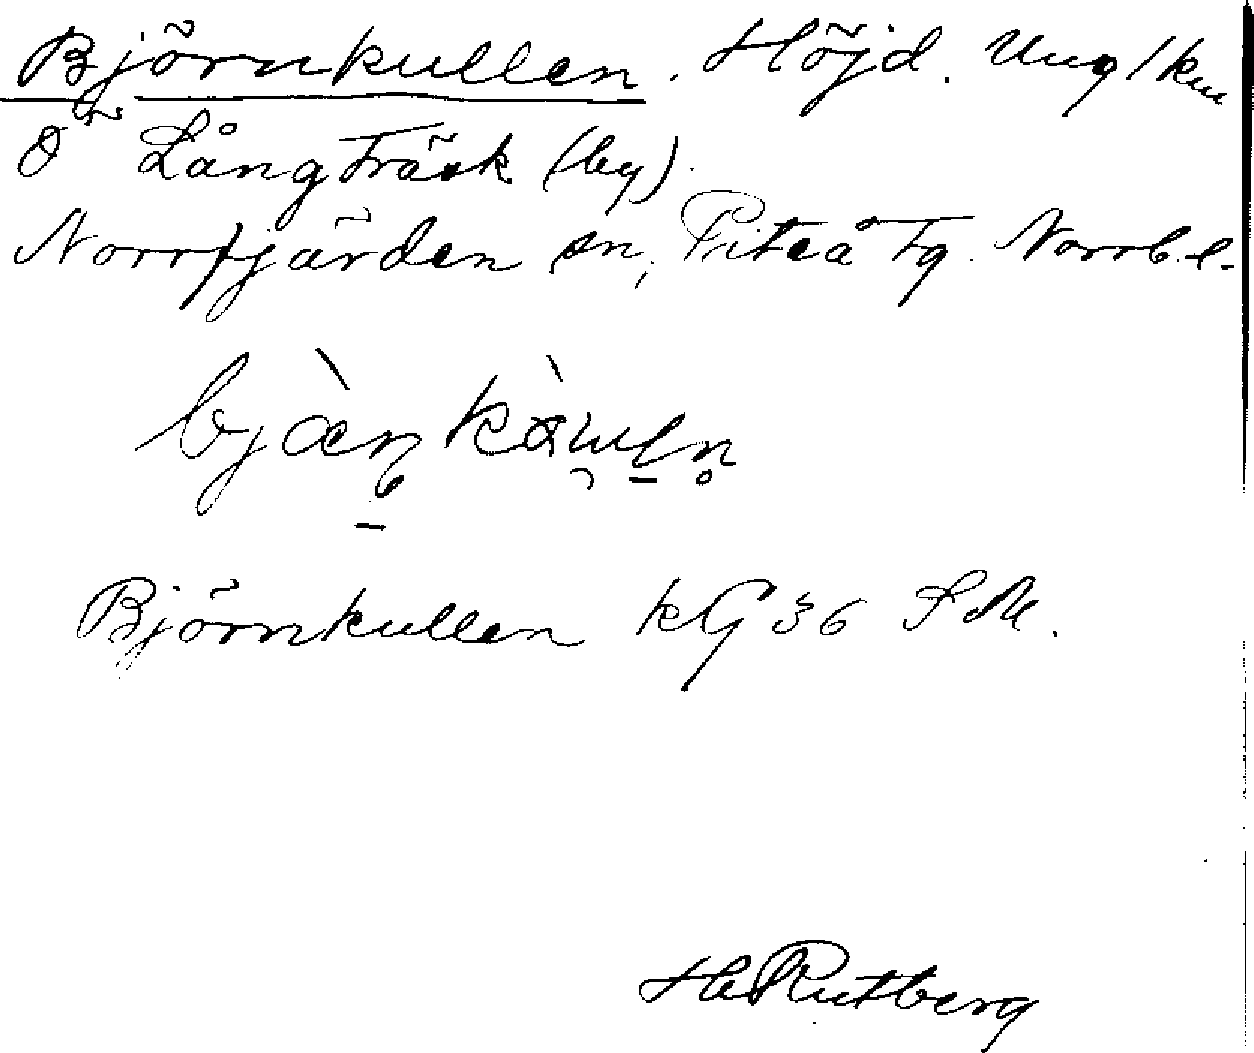 Björnkullen. Höjd. Ung 1 km
Ö om Långträsk (by).
Norrfjärden sn, Piteå tg. Norrb. l.
Björnkullen KG 36 SM.
H Rutberg